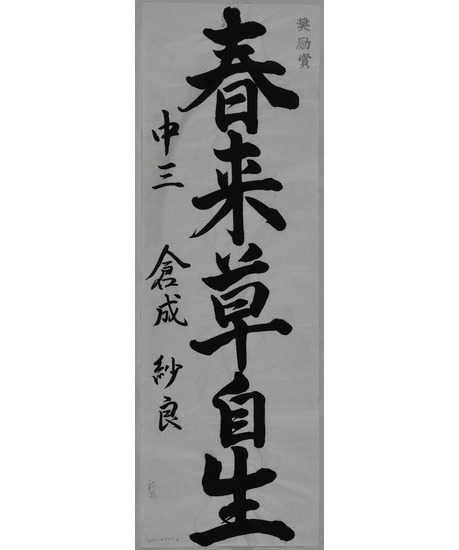 奨励賞
春来草自生
中三 倉成 紗良